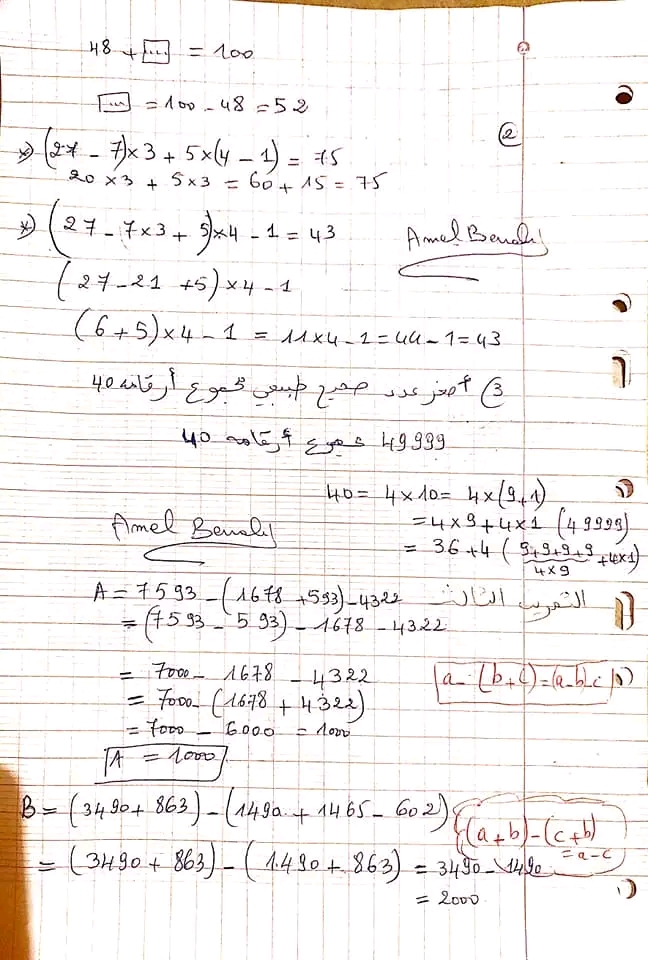 48 + [...] = 100
[...] = 100 - 48 = 52
②
*) (27 - 7)×3 + 5×(4 - 1) = 75
20×3 + 5×3 = 60 + 15 = 75
*) (27 - 7×3 + 5)×4 - 1 = 43
Amel Benaly
(27 - 21 + 5)×4 - 1
(6+5)×4 - 1 = 11×4 - 1 = 44 - 1 = 43
3) أصغر عدد صحيح طبيعي مجموع أرقامه 40
49999 مجموع أرقامه 40
40 = 4×10 = 4×(9+1)
= 4×9 + 4×1 (49999)
= 36 + 4 (9+9+9+9 + 4×1)
4×9
Amel Benaly
التمرين الثالث
A = 7593 - (1678 + 593) - 4322
= (7593 - 593) - 1678 - 4322
= 7000 - 1678 - 4322
a - (b+c) = (a-b)-c
= 7000 - (1678 + 4322)
= 7000 - 6000 = 1000
A = 1000
B = (3490 + 863) - (1490 + 1465 - 602)
(a+b) - (c+b)
= a - c
= (3490 + 863) - (1490 + 863) = 3490 - 1490
= 2000